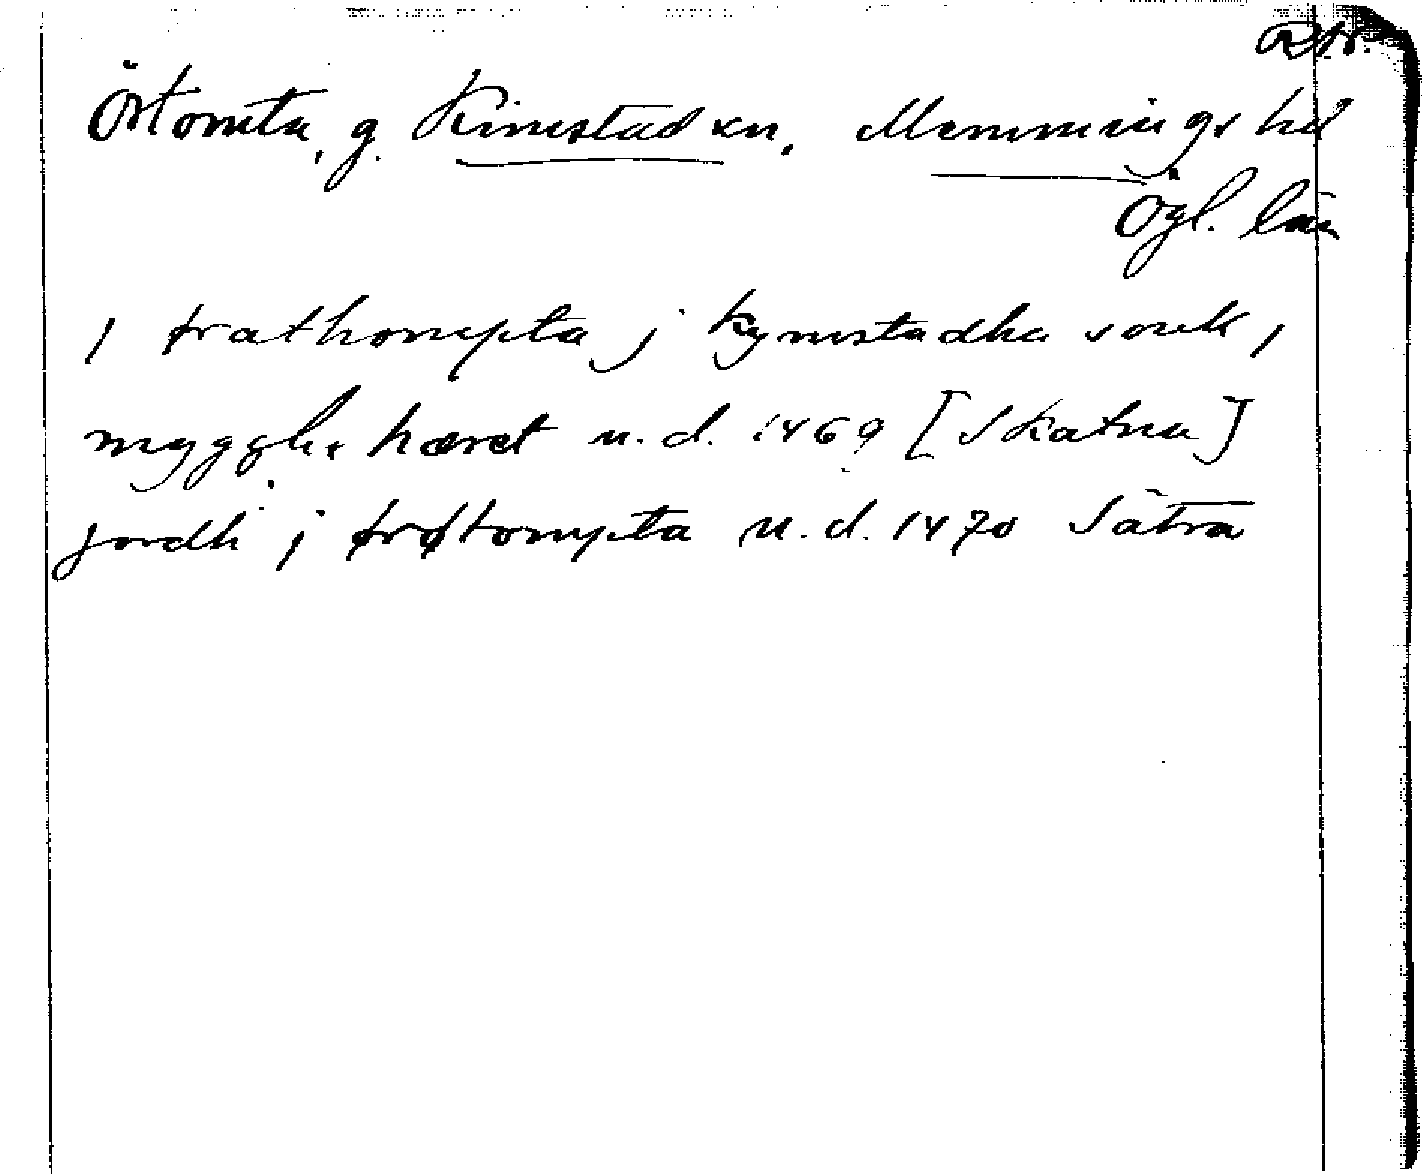 Örtomta, g. Kimstad sn, Memmings hd
Ögl. län
j trathompta j kymstadha sonk,
mygghx hæret u.d. 1469 [Skatna]
jordh j trøtompta u.d. 1470 Sätra